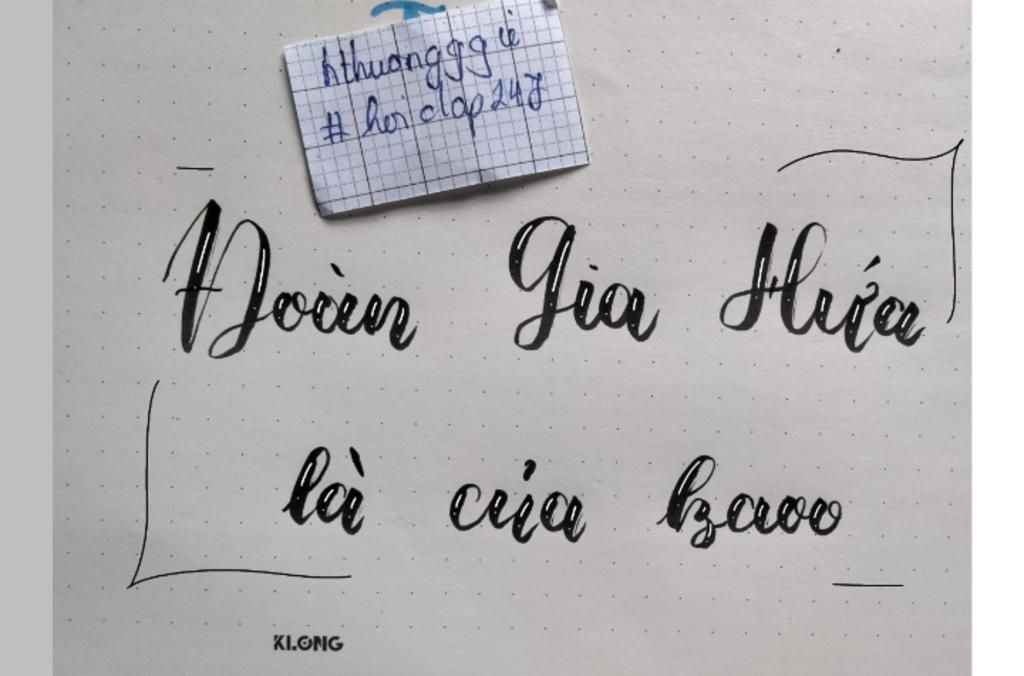 hthuonggg ie
# her clap247
Đoàn Gia Hứa
là của bzaoo
KLONG